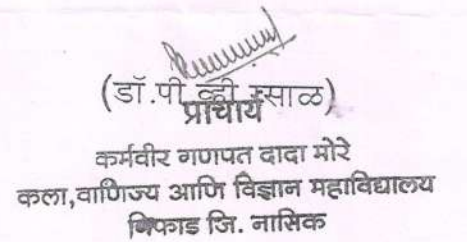 (डॉ.पी.व्ही.रसाळ)
प्राचार्य
कर्मवीर गणपत दादा मोरे
कला,वाणिज्य आणि विज्ञान महाविद्यालय
निफाड जि. नासिक